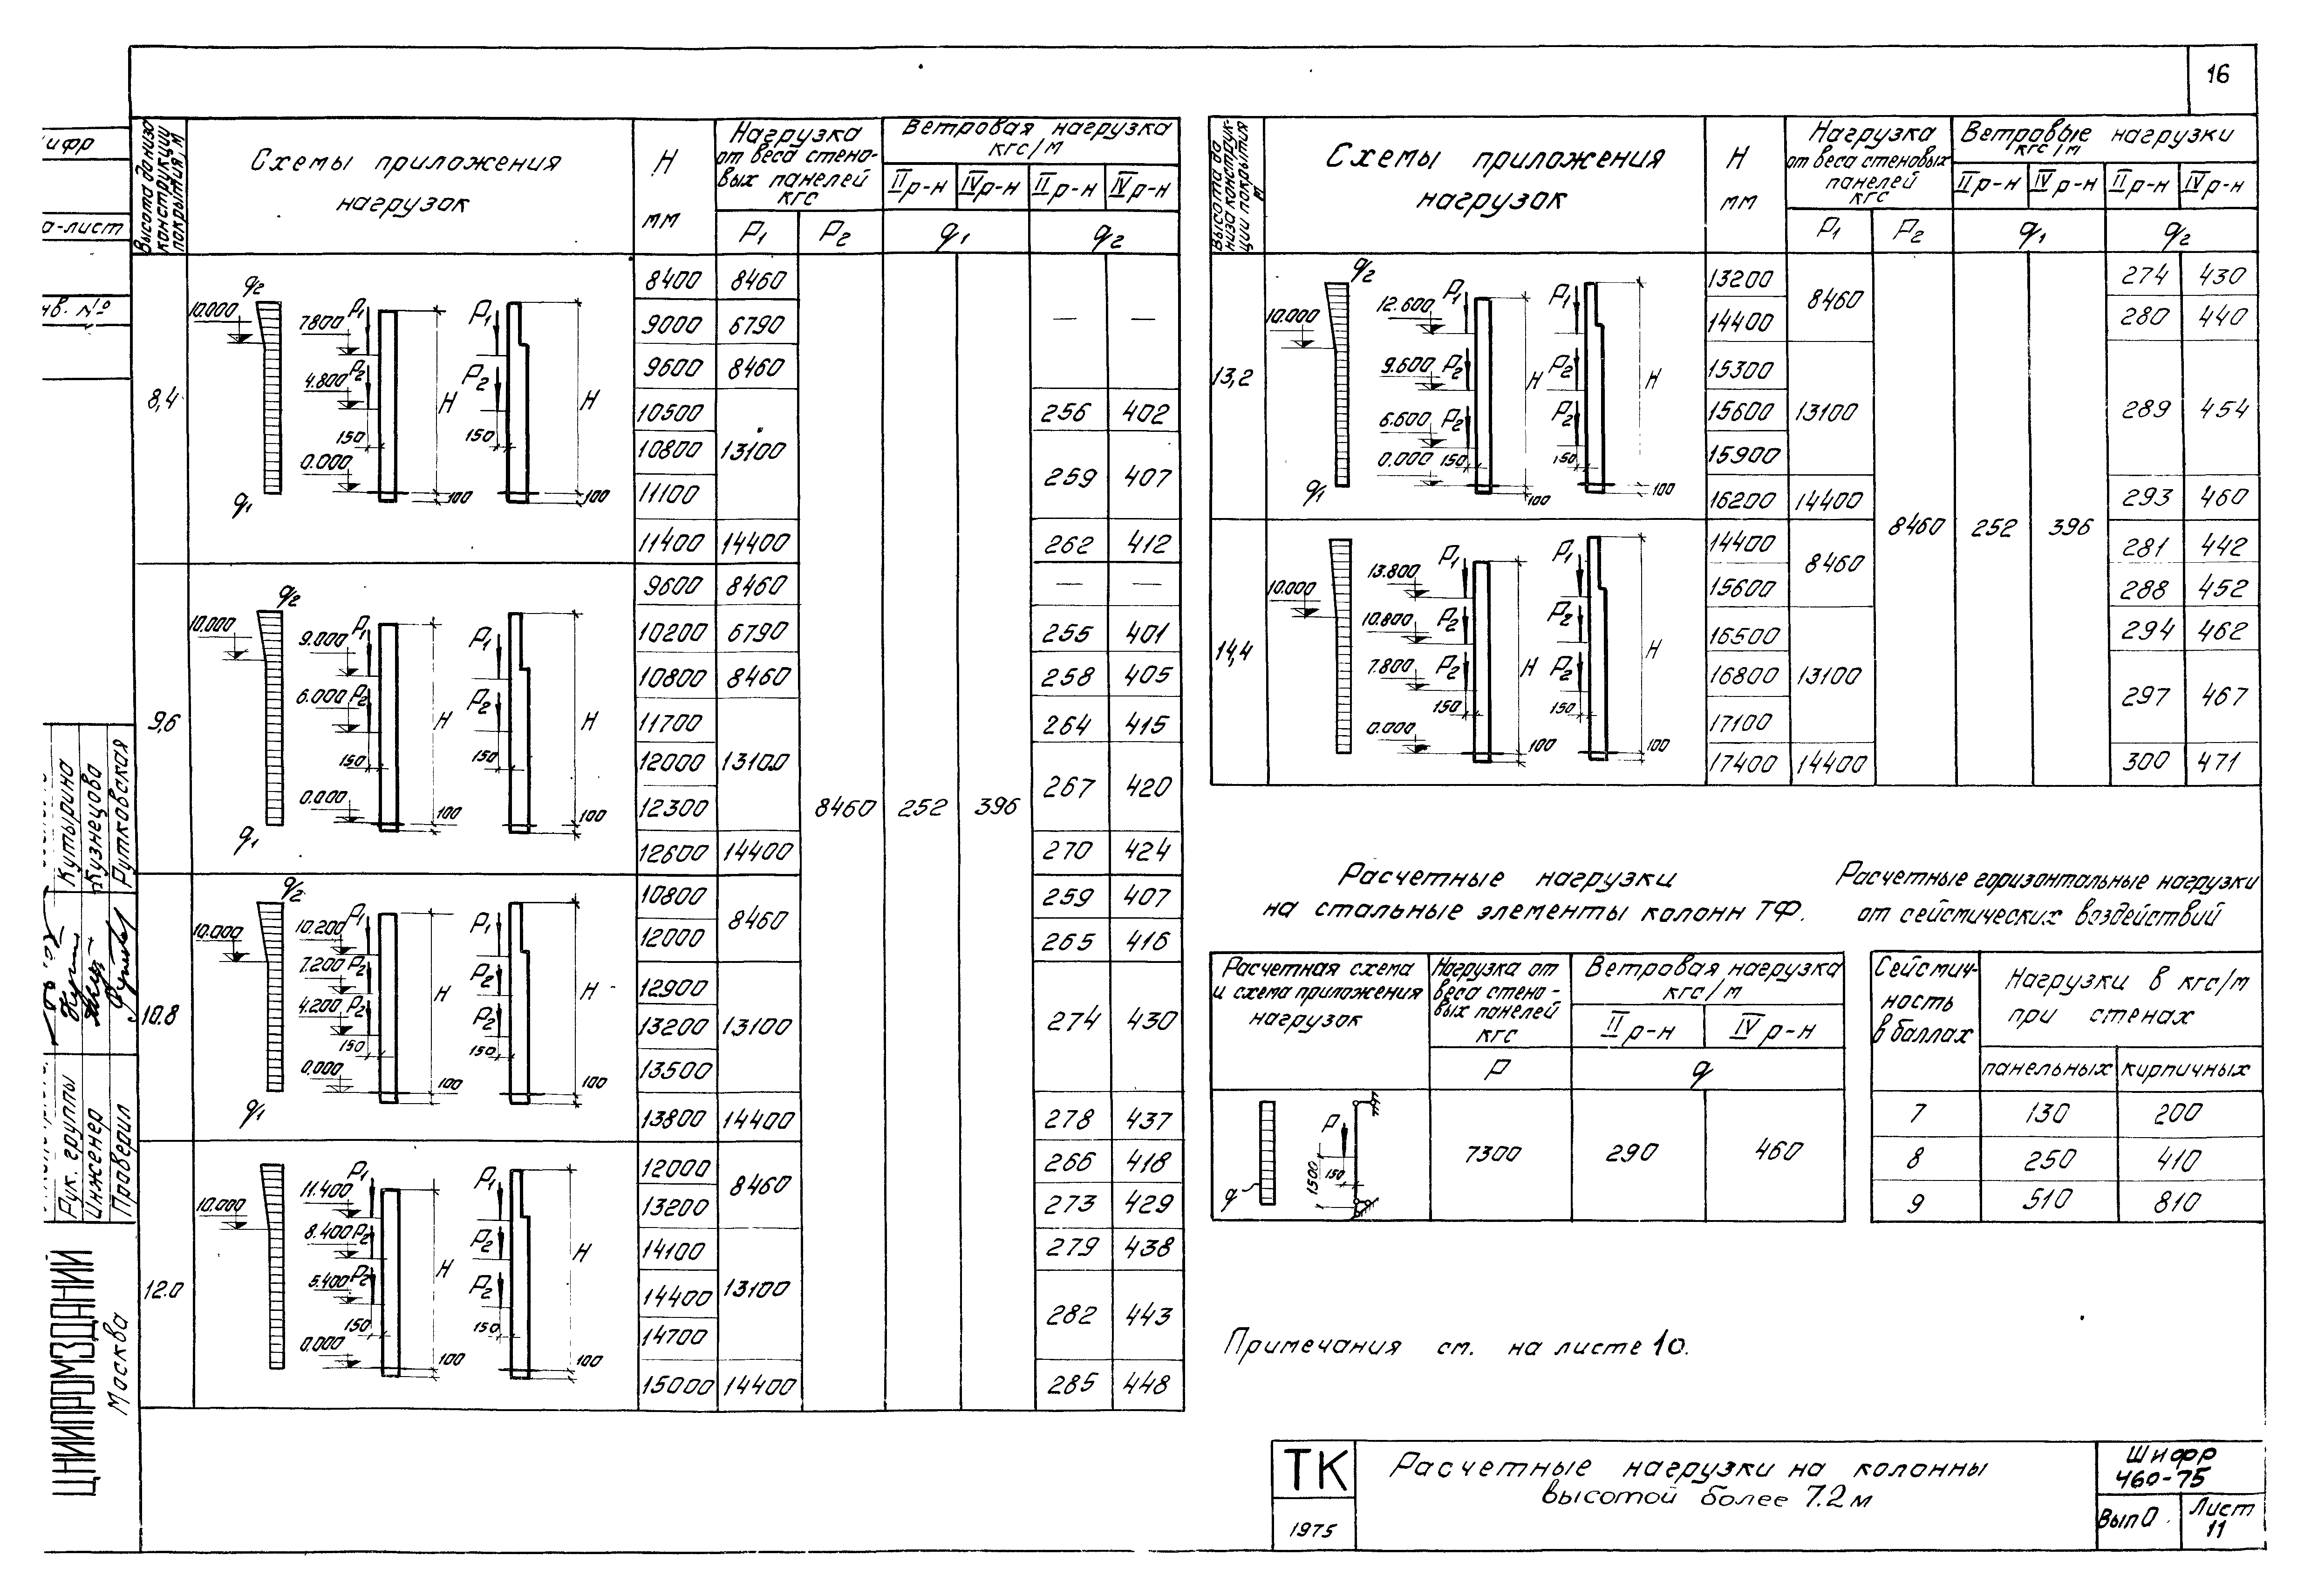 16
Шифр
а-лист
Инв. №
Высота до низа конструкции покрытия, м
Схемы приложения
нагрузок
H
мм
Нагрузка
от веса стено-
вых панелей
кгс
P1 P2
Ветровая нагрузка
кгс/м
II р-н IV р-н II р-н IV р-н
q1 q2
8,4
q2
10.000
7800 P1
4.800 P2
150
0.000
q1
H
100
P1
P2
150
H
100
8400 8460
9000 6790 — —
9600 8460
10500 256 402
10800 13100
259 407
11100
11400 14400 262 412
9,6
q2
10.000
9.000 P1
6.000 P2
150
0.000
q1
H
100
P1
P2
150
H
100
9600 8460 — —
10200 6790 255 401
10800 8460 258 405
11700 264 415
12000 13100
267 420
12300
8460 252 396
12600 14400 270 424
10.8
q2
10.000
10.200 P1
7.200 P2
4.200 P2
150
0.000
q1
H
100
P1
P2
P2
150
H
100
10800 259 407
8460
12000 265 416
12900
13200 13100 274 430
13500
13800 14400 278 437
12.0
10.000
11.400 P1
8.400 P2
5.400 P2
150
0.000
H
100
P1
P2
P2
150
H
100
12000 266 418
8460
13200 273 429
14100 279 438
14400 13100
282 443
14700
15000 14400 285 448
Высота до
низа конструк-
ции покрытия
м
Схемы приложения
нагрузок
H
мм
Нагрузка
от веса стеновых
панелей
кгс
P1 P2
Ветровые нагрузки
кгс/м
II р-н IV р-н II р-н IV р-н
q1 q2
13,2
q2
10.000
12.600 P1
9.600 P2
6.600 P2
0.000 150
q1
H
100
P1
P2
P2
150
H
100
13200 274 430
8460
14400 280 440
15300
15600 13100 289 454
15900
16200 14400 293 460
8460 252 396
14,4
10.000
13.800 P1
10.800 P2
7.800 P2
150
0.000
H
100
P1
P2
P2
150
H
100
14400 281 442
8460
15600 288 452
16500 294 462
16800 13100
297 467
17100
17400 14400 300 471
Расчетные нагрузки
на стальные элементы колонн ТФ.
Расчетная схема
и схема приложения
нагрузок
Нагрузка от
веса стено-
вых панелей
кгс
P
Ветровая нагрузка
кгс/м
II р-н IV р-н
q
q
P
1500
150
7300 290 460
Расчетные горизонтальные нагрузки
от сейсмических воздействий
Сейсмич-
ность
в баллах
Нагрузки в кгс/м
при стенах
панельных кирпичных
7 130 200
8 250 410
9 510 810
Примечания см. на листе 10.
Рук. группы Кутырина
Инженер Кузнецова
Проверил Рутковская
ЦНИИПРОМЗДАНИЙ
Москва
ТК
1975
Расчетные нагрузки на колонны
высотой более 7.2 м
Шифр
460-75
Вып 0
Лист
11